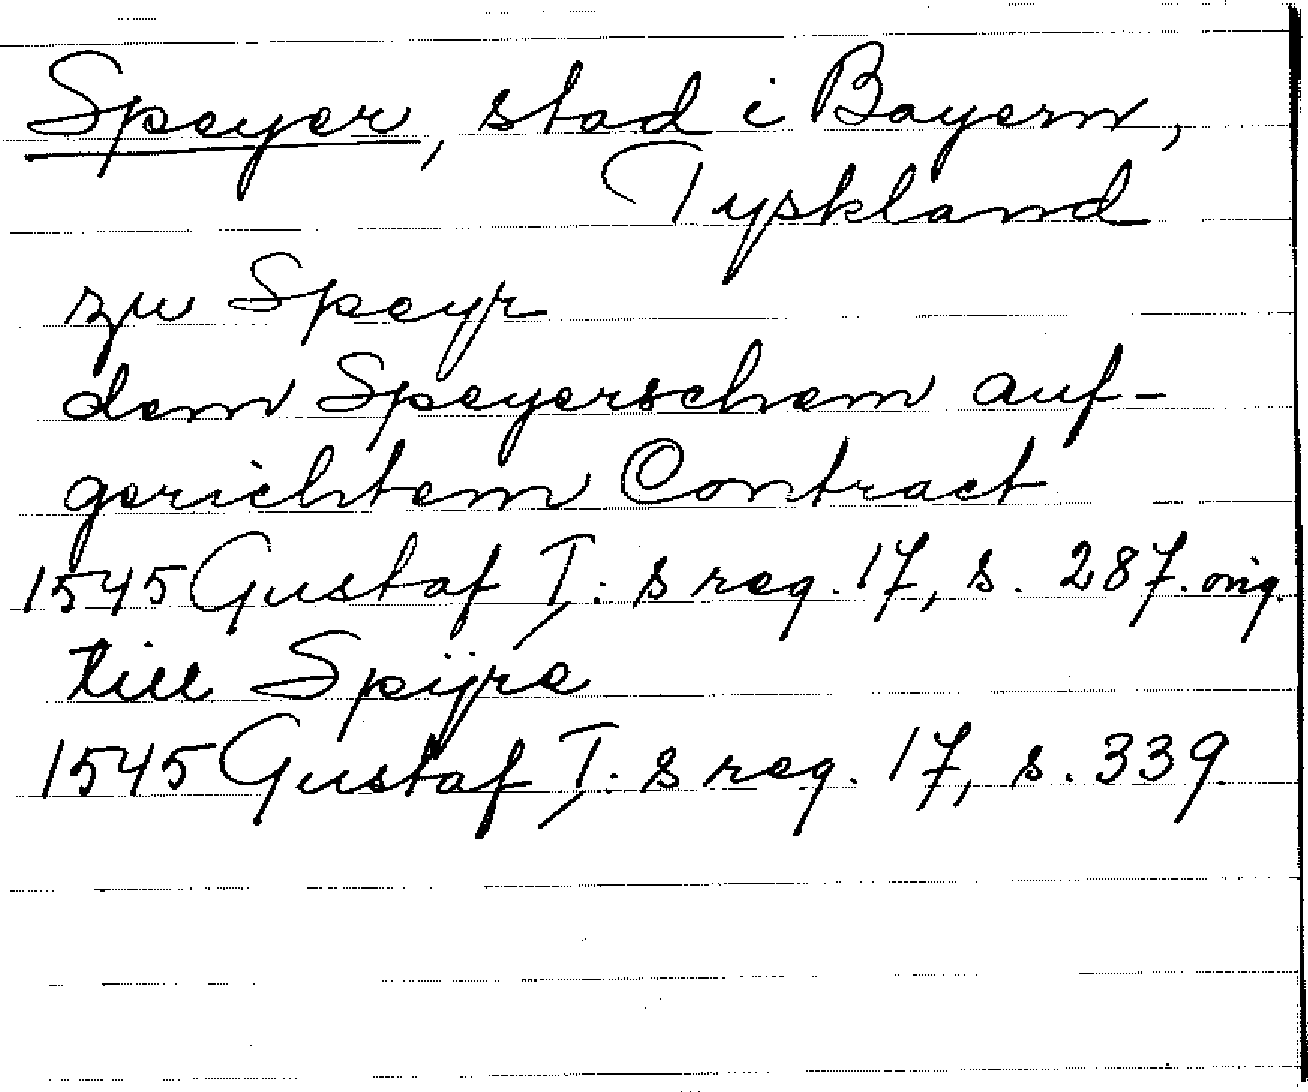 Speyer, stad i Bayern,
Tyskland
zu Speyr
dem Speyerschem auf-
gerichtem Contract
1545 Gustaf I: s reg. 17, s. 287. orig.
till Spijre
1545 Gustaf I: s reg. 17, s. 339